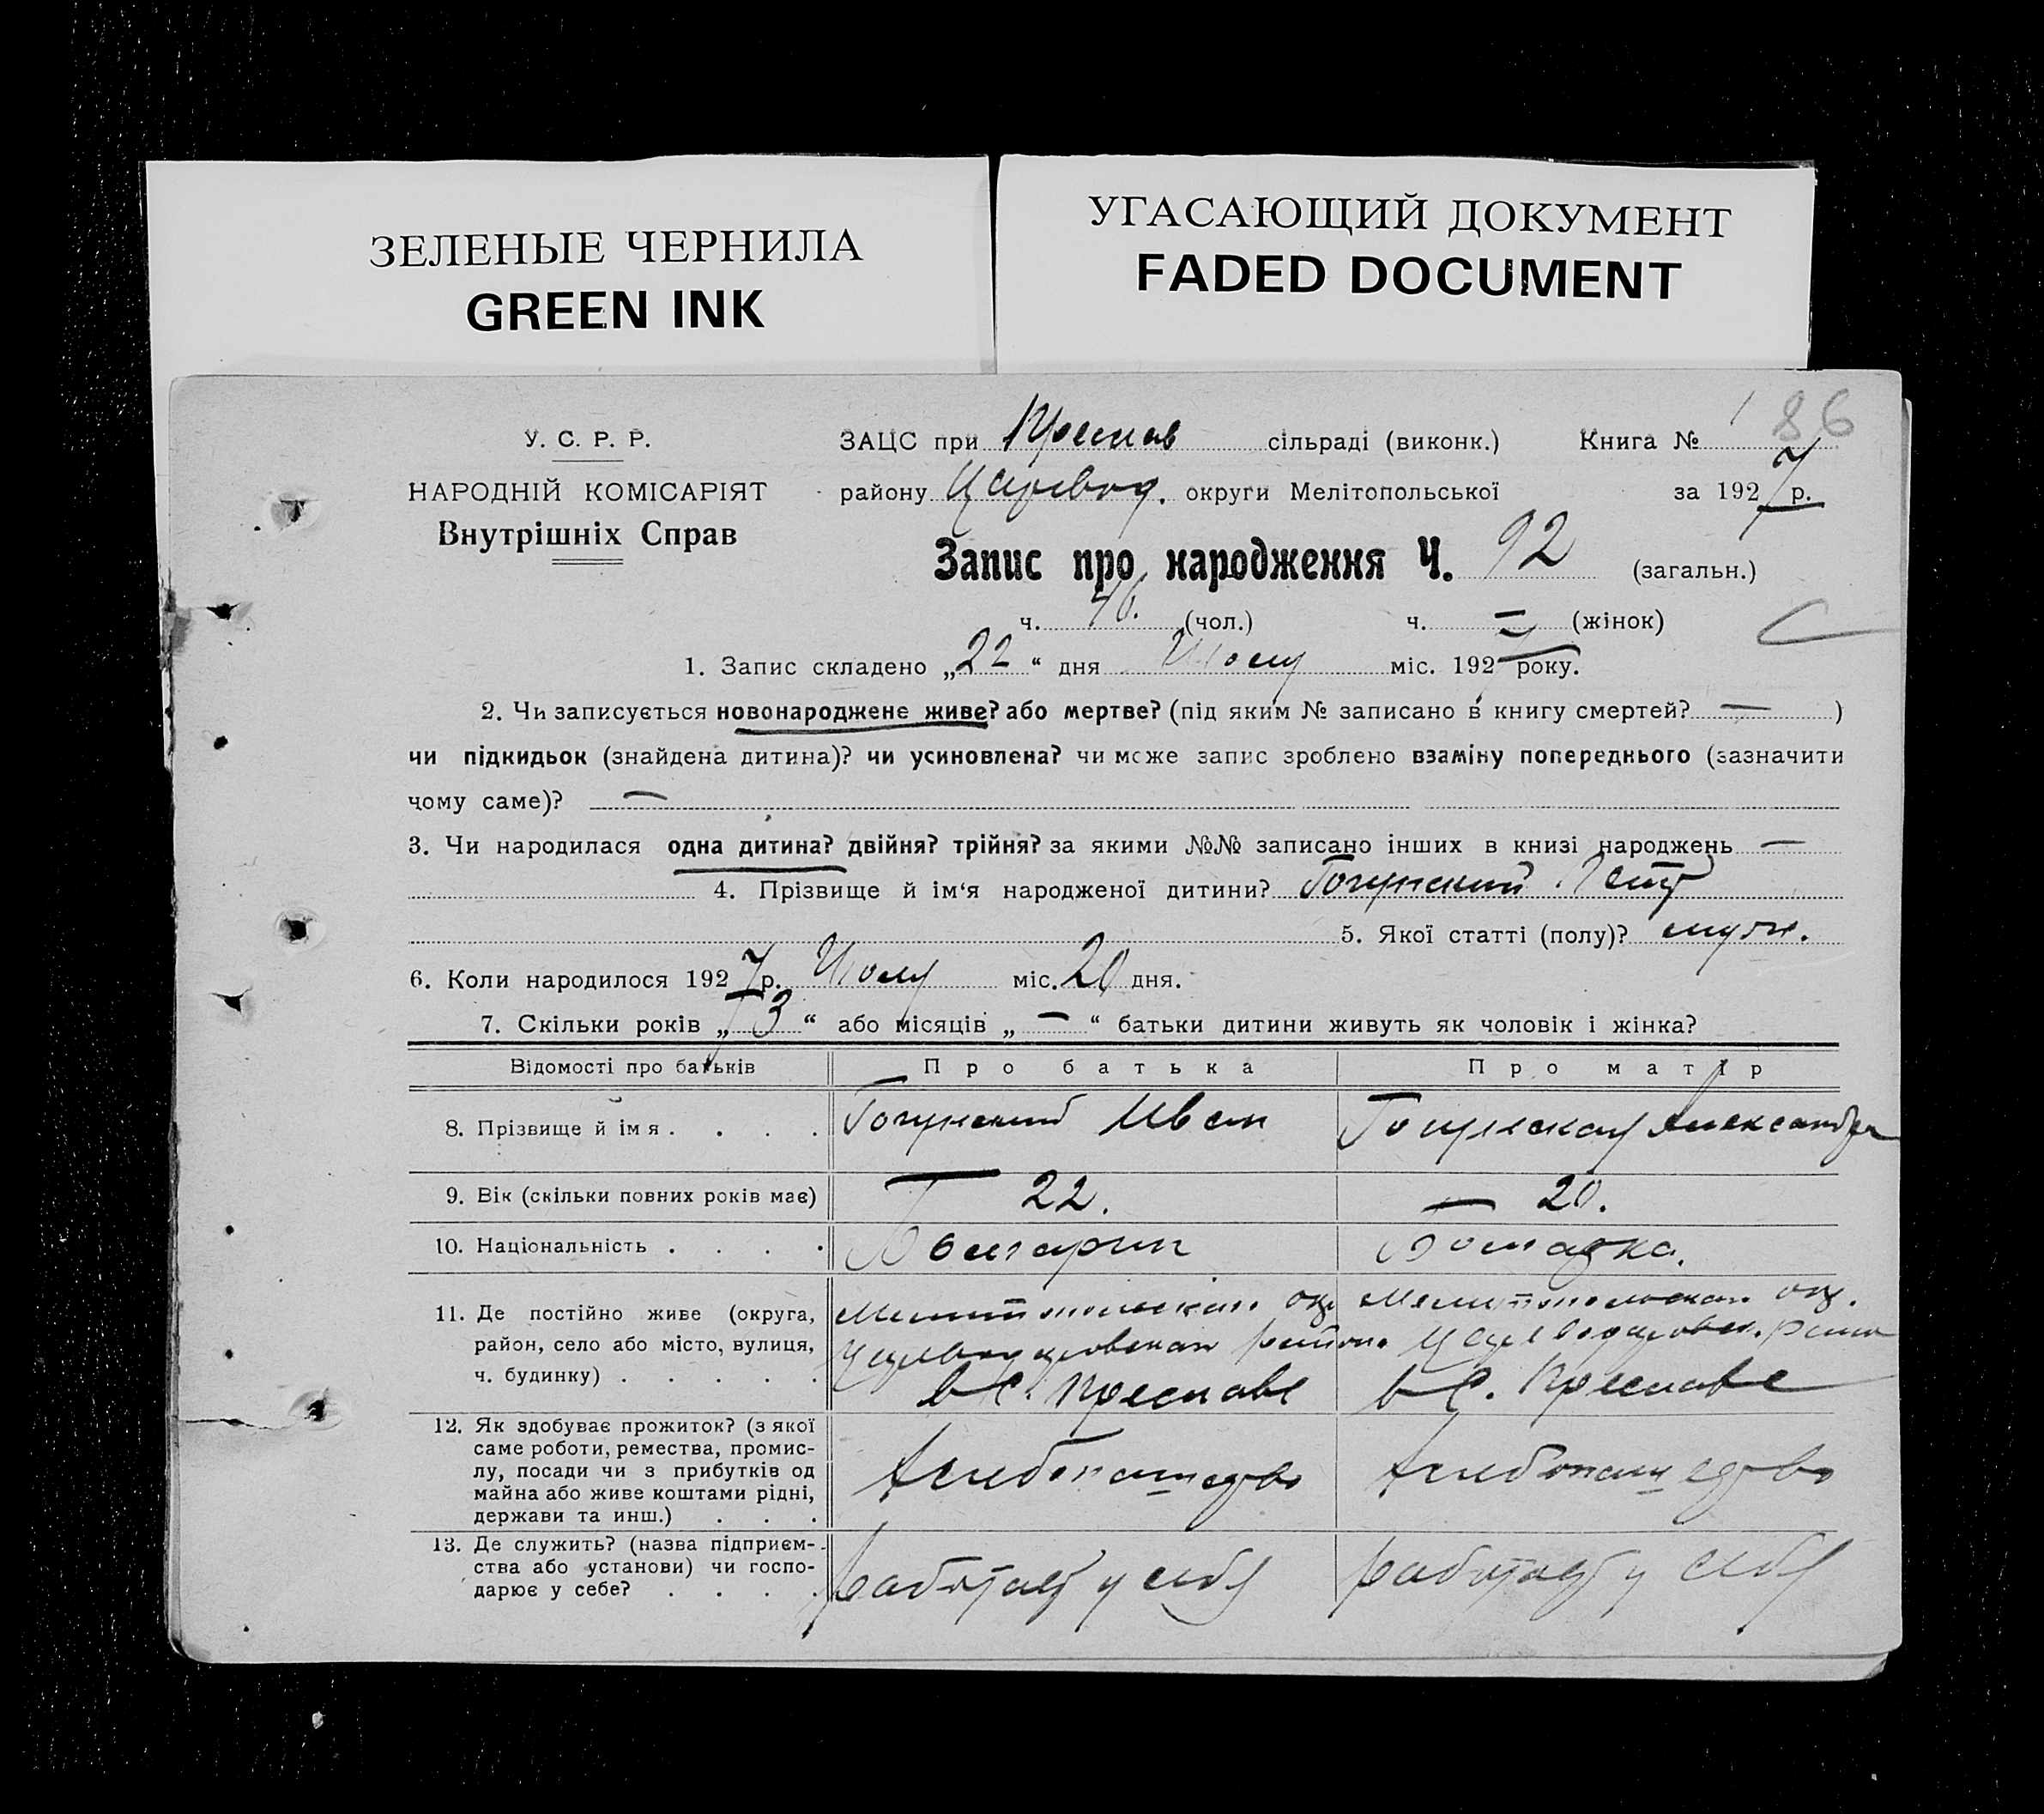 ЗЕЛЕНЫЕ ЧЕРНИЛА
GREEN INK
УГАСАЮЩИЙ ДОКУМЕНТ
FADED DOCUMENT
186
У. С. Р. Р.
НАРОДНІЙ КОМІСАРІЯТ
Внутрішніх Справ
ЗАЦС при Преслав сільраді (виконк.) Книга №
району Царевод. округи Мелітопольської за 1927 р.
Запис про народження Ч. 92 (загальн.)
ч. 46. (чол.) ч. — (жінок)
1. Запис складено „22“ дня Июля міс. 1927 року.
2. Чи записується новонароджене живе? або мертве? (під яким № записано в книгу смертей? — )
чи підкидьок (знайдена дитина)? чи усиновлена? чи може запис зроблено взаміну попереднього (зазначити
чому саме)? —
3. Чи народилася одна дитина? двійня? трійня? за якими №№ записано інших в книзі народжень —
4. Прізвище й ім‘я народженої дитини? Гогунский Петр
5. Якої статті (полу)? муж.
6. Коли народилося 1927 р. Июля міс. 20 дня.
7. Скільки років „3“ або місяців „—“ батьки дитини живуть як чоловік і жінка?
Відомості про батьків Про батька Про матір
8. Прізвище й ім я . . . . Гогунский Иван Гогунская Александра
9. Вік (скільки повних років має) 22. — 20.
10. Національність . . . . Болгарин Болгарка.
11. Де постійно живе (округа, район, село або місто, вулиця, ч. будинку) . . . . .
Мелитопольская окр. Мелитопольская окр.
Цареводаровская района Цареводаровск. рано
в с. Преславе в с. Преславе
12. Як здобуває прожиток? (з якої
саме роботи, ремества, промис-
лу, посади чи з прибутків од
майна або живе коштами рідні,
держави та инш.) . . .
Хлебопашество Хлебопашество
13. Де служить? (назва підприєм-
ства або установи) чи госпо-
дарює у себе? . . . .
работает у себя работает у себя